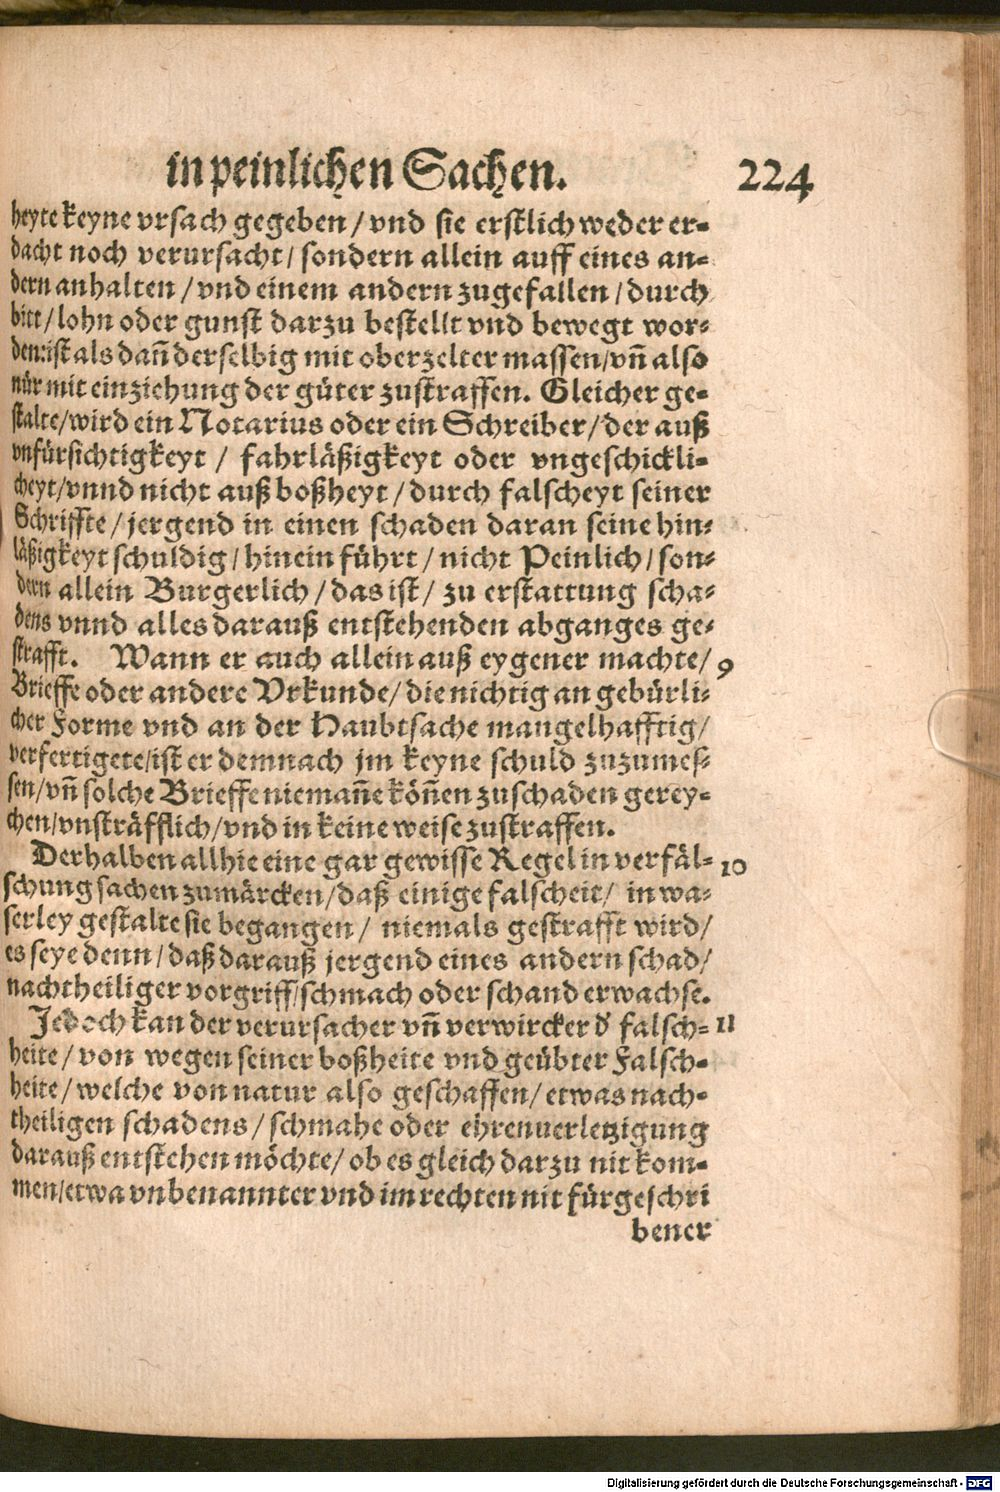 in peinlichen Sachen. 224
heyte keyne vrsach gegeben / vnd sie erstlich weder er-
dacht noch verursacht / sondern allein auff eines an-
dern anhalten / vnd einem andern zugefallen / durch
bitt / lohn oder gunst darzu bestellt vnd bewegt wor-
den: ist als dañ derselbig mit oberzelter massen / vñ also
nůr mit einziehung der güter zustraffen. Gleicher ge-
stalte / wird ein Notarius oder ein Schreiber / der auß
vnfürsichtigkeyt / fahrläßigkeyt oder vngeschickli-
cheyt / vnnd nicht auß boßheyt / durch falscheyt seiner
Schriffte / jergend in einen schaden daran seine hin-
läßigkeyt schuldig / hinein führt / nicht Peinlich / son-
dern allein Burgerlich / das ist / zu erstattung scha-
dens vnnd alles darauß entstehenden abganges ge-
strafft. Wann er auch allein auß eygener machte / 9
Brieffe oder andere Vrkunde / die nichtig an gebürli-
cher Forme vnd an der Haubtsache mangelhafftig /
verfertigete / ist er demnach jm keyne schuld zuzumes-
sen / vñ solche Brieffe niemañe köñen zu schaden gerey-
chen / vnsträfflich / vnd in keine weise zustraffen.
Derhalben allhie eine gar gewisse Regel in verfäl- 10
schung sachen zumärcken / daß einige falscheit / in wa-
serley gestalte sie begangen / niemals gestrafft wird /
es seye denn / daß darauß jergend eines andern schad /
nachtheiliger vorgriff / schmach oder schand erwachse.
Jedoch kan der verursacher vñ verwircker d' falsch- 11
heite / von wegen seiner boßheite vnd geübter Falsch-
heite / welche von natur also geschaffen / etwas nach-
theiligen schadens / schmahe oder ehrenuerletzigung
darauß entstehen möchte / ob es gleich darzu nit kom-
men / etwa vnbenannter vnd im rechten nit fürgeschri
bener
Digitalisierung gefördert durch die Deutsche Forschungsgemeinschaft - DFG